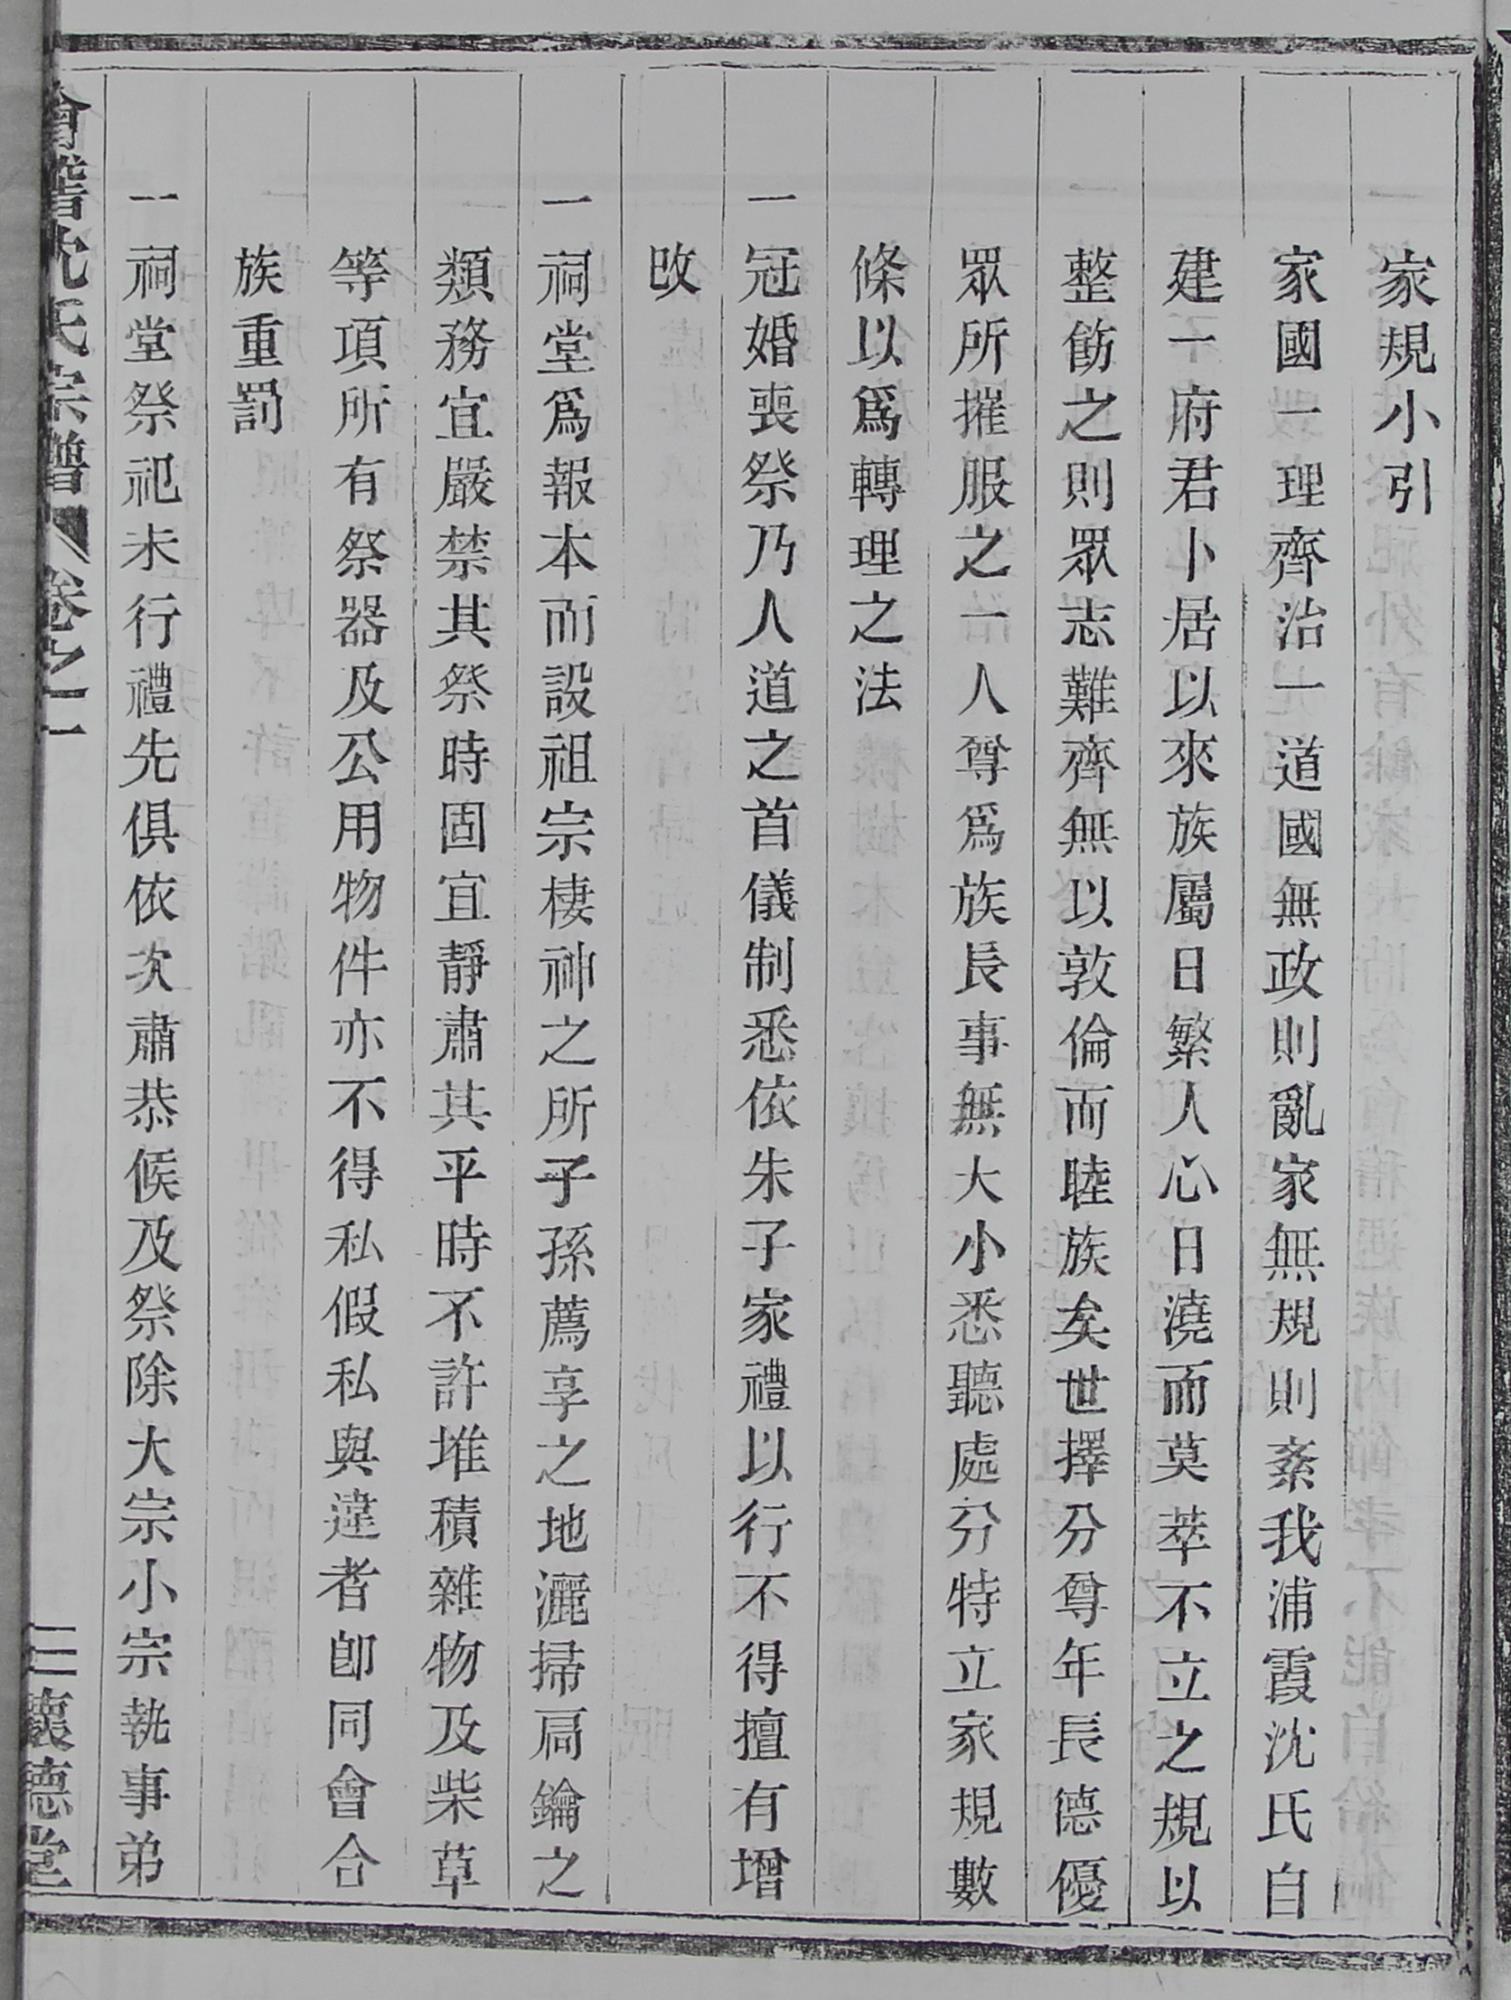 家規小引
家國一理齊治一道國無政則亂家無規則紊我浦霞沈氏自
建一府君卜居以來族屬日繁人心日澆而莫萃不立之規以
整飭之則眾志難齊無以敦倫而睦族矣世擇分尊年長德優
眾所摧服之一人尊爲族長事無大小悉聽處分特立家規數
條以爲轉理之法
一冠婚喪祭乃人道之首儀制悉依朱子家禮以行不得擅有增
改
一祠堂爲報本而設祖宗棲神之所子孫薦享之地灑掃扃鑰之
類務宜嚴禁其祭時固宜靜肅其平時不許堆積雜物及柴草
等項所有祭器及公用物件亦不得私假私與違者卽同會合
族重罰
一祠堂祭祀未行禮先俱依次肅恭候及祭除大宗小宗執事弟
會稽沈氏宗譜 卷之一 二 懷德堂